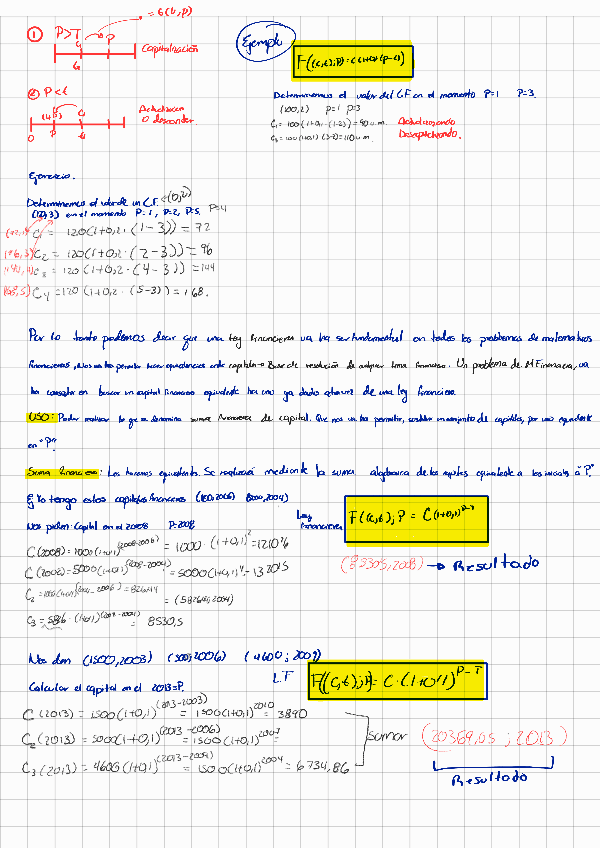 = G(b,p)
① P>T
G P
Capitalización
G
Ejemplo
F((c,t);P) = C(1+0,1·(P-t))
② P<t
Determinemos el valor del C.F en el momento P=1 P=3.
(100,2) P=1 P=3
C₁ = 100(1+0,1·(1-2)) = 90 u.m. Actualizando
C₂ = 100(1+0,1)·(3-2) = 110 u.m. Descapitalizando.
Actualización
O descontar
0 P G
Ejercicio.
Determinemos el valor de un C.F. (0,2)
(120,3) en el momento P=1, P=2, P=5. P=4
(72,1) C₁ = 120(1+0,2·(1-3)) = 72
(96,2) C₂ = 120(1+0,2·(2-3)) = 96
(144,4) C₃ = 120(1+0,2·(4-3)) = 144
(168,5) C₄ = 120(1+0,2·(5-3)) = 168.
Por lo tanto podemos decir que una ley financiera va ha ser fundamental en todos los problemas de matematicas
financieras, Nos va ha permitir hacer equivalencias entre capitales → Base de resolución de cualquier tema financiero. Un problema de M Financiera, va
ha consistir en buscar un capital financiero equivalente ha uno ya dado atraves de una ley financiera.
USO: Poder realizar lo que se denomina suma financiera de capital. Que nos va ha permitir, sustituir un conjunto de capitales, por uno equivalente
en "P".
Suma financiera: Los haremos equivalentes. Se realizará mediante la suma algebraica de los capitales equivalente a los iniciales a "P"
Ej Yo tengo estos capitales financieros (1000,2006) (5000,2004)
Nos piden: Capital en el 2008 P=2008
Ley
Financiera
F(c,t);P = C(1+0,1)^P-T
C(2008) = 1000(1+0,1)^(2008-2006) = 1000·(1+0,1)² = 1210
C(2008) = 5000(1+0,1)^(2008-2004) = 5000(1+0,1)⁴ =
(8530,5, 2008) → Resultado
C₃ = 8530,5
Nos dan (1500,2003) (500,2006) (4600;2009)
Calcular el capital en el 2013=P.
L F
F((C,t);P) = C·(1+0'1)^P-T
C(2013) = 1500(1+0,1)^(2013-2003) = 1500(1+0,1)^2010 = 3890
C₂(2013) = 5000(1+0,1)^(2013-2006) = 1500(1+0,1)^2007 =
C₃(2013) = 4600(1+0,1)^(2013-2009) = 1500(1+0,1)^2004 = 6734,86
sumar (20389,05; 2013)
Resultado